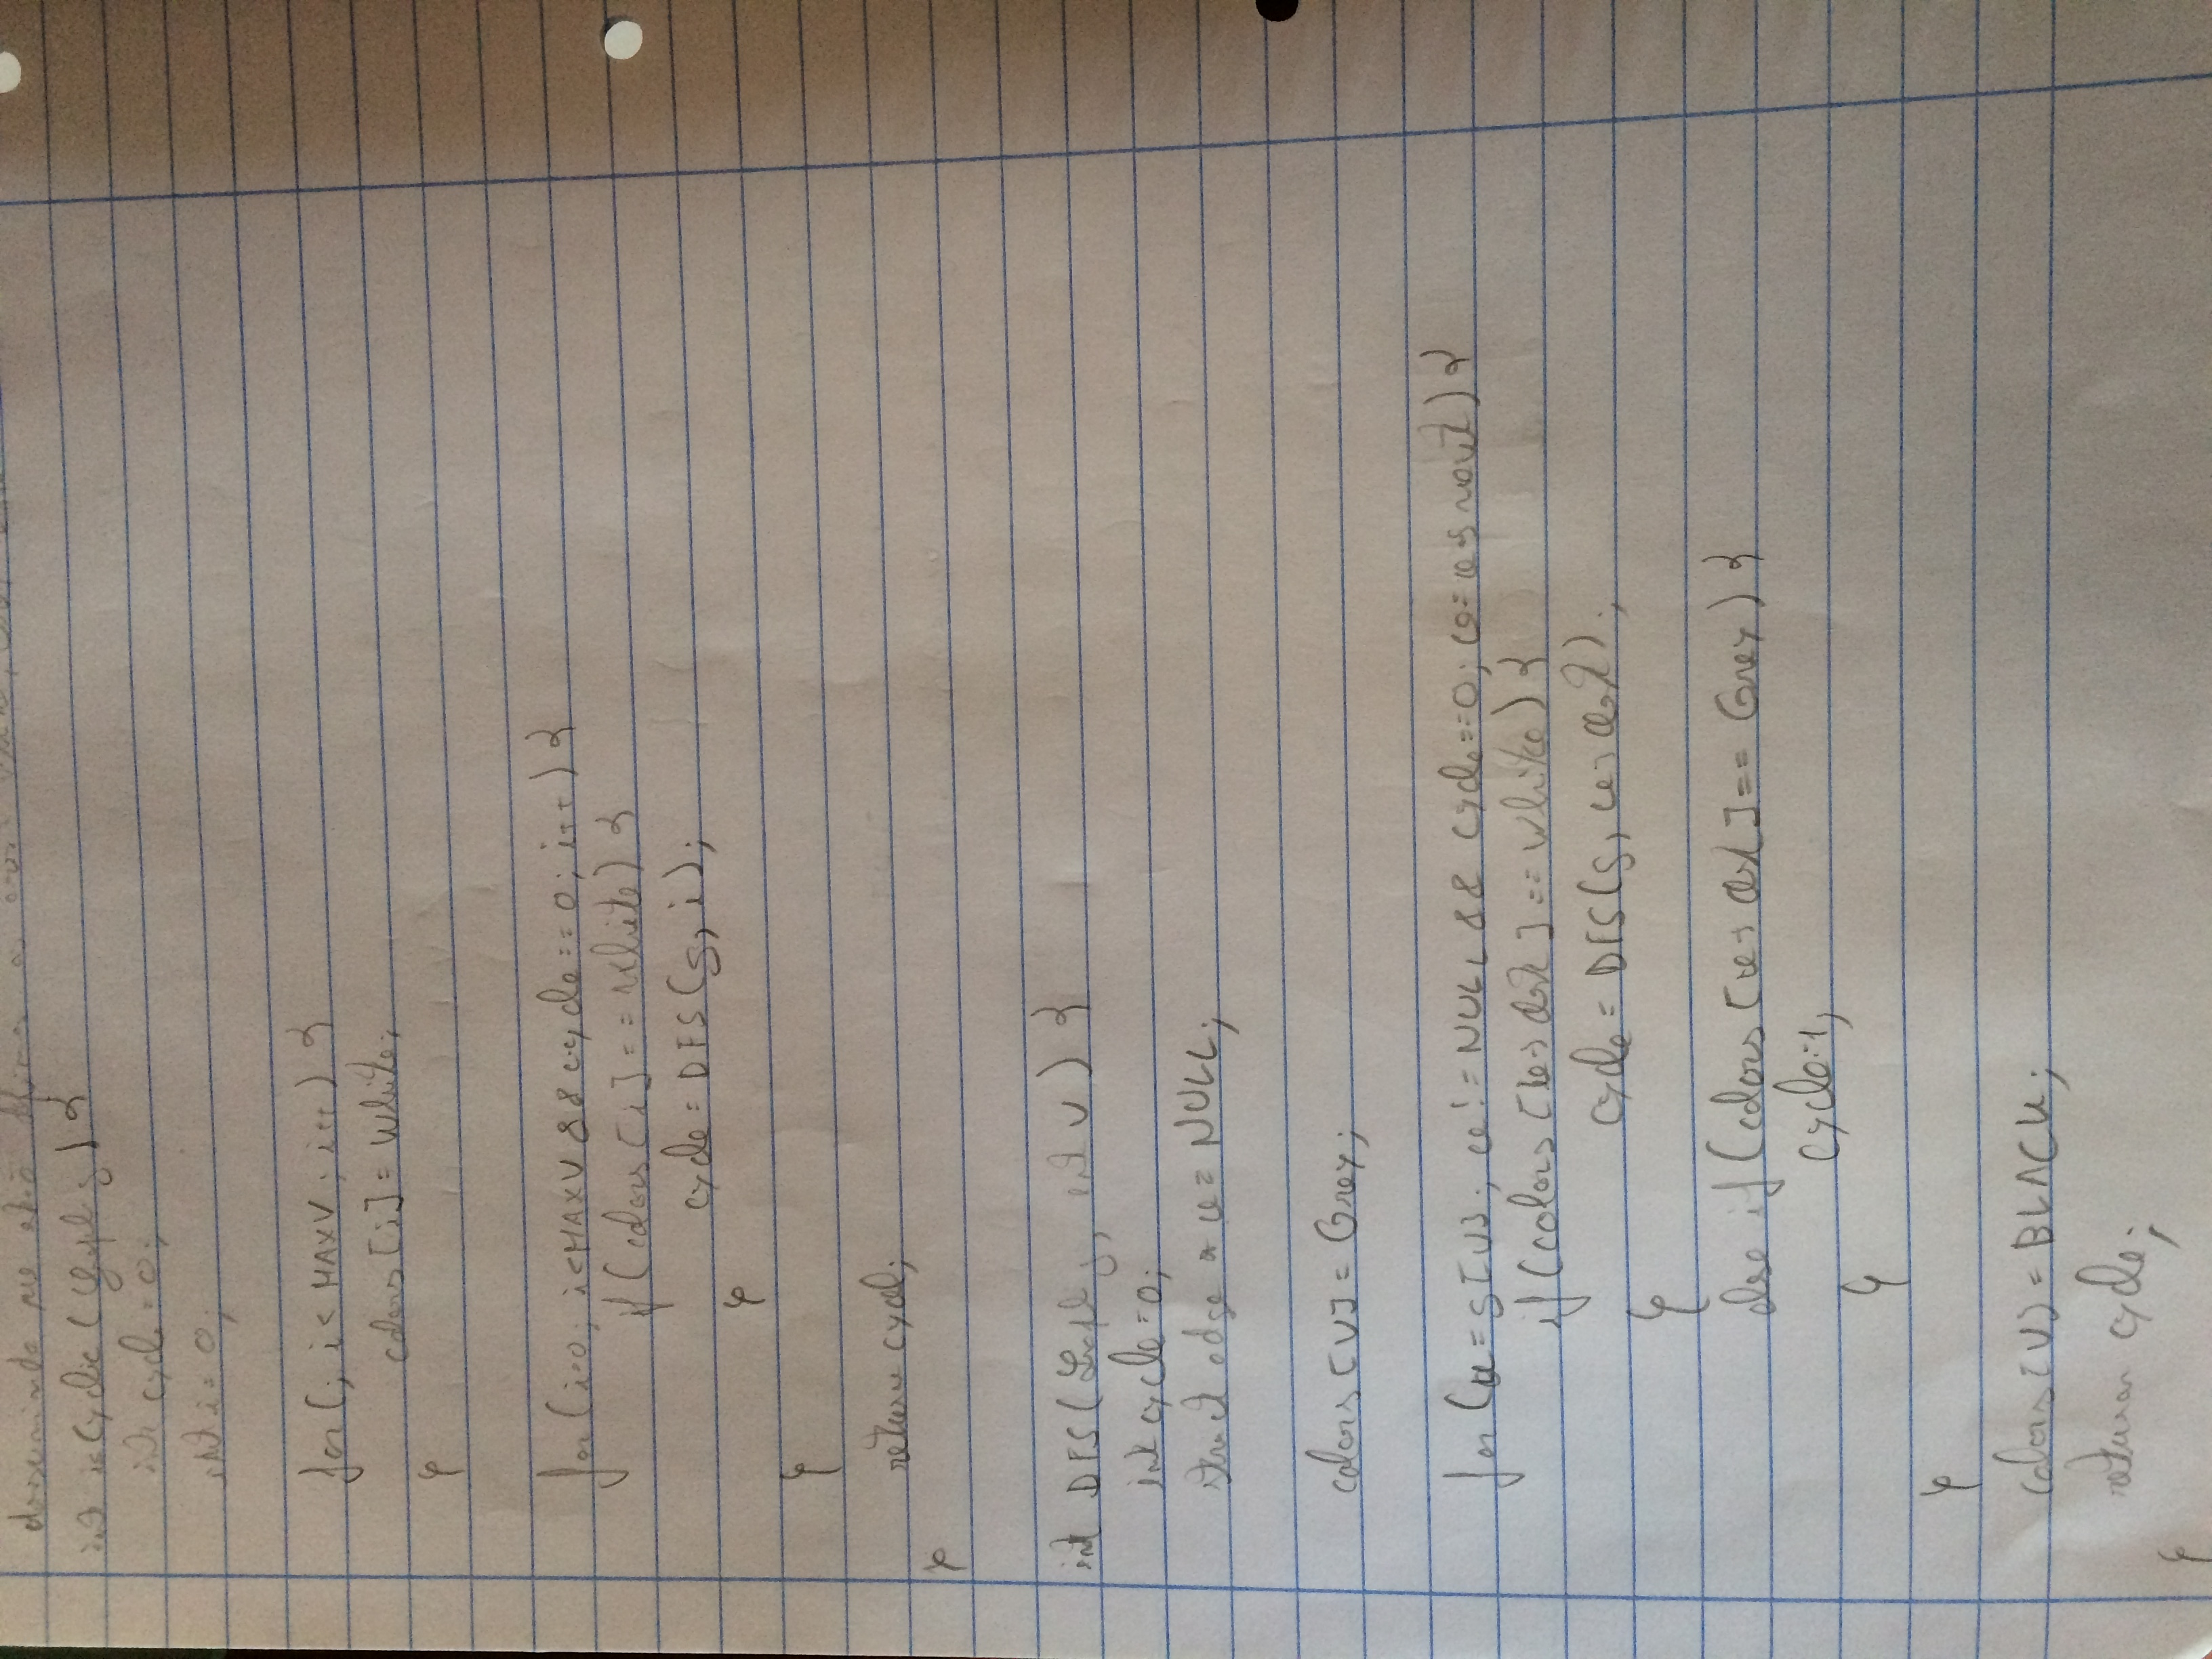 assumindo que
int isCyclic (Graph g) {
int cycle = 0;
int i = 0;
for(; i < MAXV; i++) {
colors[i] = White;
}
for(i=0; i<MAXV && cycle==0; i++) {
if(colors[i]==White) {
cycle = DFS(g, i);
}
}
return cycle;
}
int DFS(Graph g, int v) {
int cycle=0;
struct edge * u = NULL;
colors[v] = Grey;
for(u=g[v]; u!=NULL && cycle==0; u=u->next) {
if(colors[u->dest]==White) {
cycle = DFS(g, u->dest);
}
else if(colors[u->dest]==Grey) {
cycle=1;
}
}
colors[v] = BLACK;
return cycle;
}